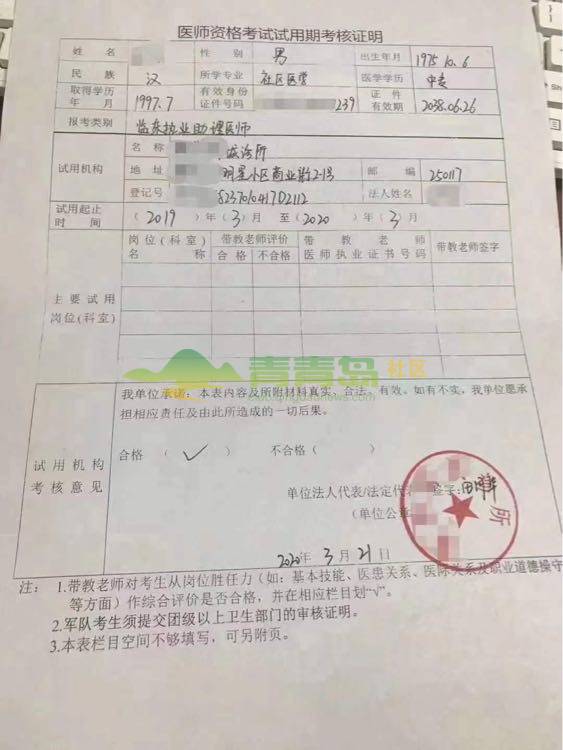 医师资格考试试用期考核证明
姓名 性别 男 出生年月 1975.10.6
民族 汉 所学专业 社区医学 医学学历 中专
取得学历年月 1997.7 有效身份证件号码 239 证件有效期 2038.06.26
报考类别 临床执业助理医师
试用机构 名称 诊所
地址 明星小区商业街2-1号 邮编 250117
登记号 8237010417D2112 法人姓名
试用起止时间 (2019)年(3)月 至(2020)年(3)月
主要试用岗位(科室) 岗位(科室)名称 带教老师评价 合格 不合格 带教老师医师执业证书号码 带教老师签字
青青岛社区
试用机构考核意见
我单位承诺:本表内容及所附材料真实、合法、有效。如有不实,我单位愿承
担相应责任及由此所造成的一切后果。
合格 ( ✓ ) 不合格( )
单位法人代表/法定代 签字:
(单位公章
所
2020年 3月 21日
注: 1.带教老师对考生从岗位胜任力(如:基本技能、医患关系、医际关系及职业道德操守
等方面)作综合评价是否合格,并在相应栏目划“√”。
2.军队考生须提交团级以上卫生部门的审核证明。
3.本表栏目空间不够填写,可另附页。